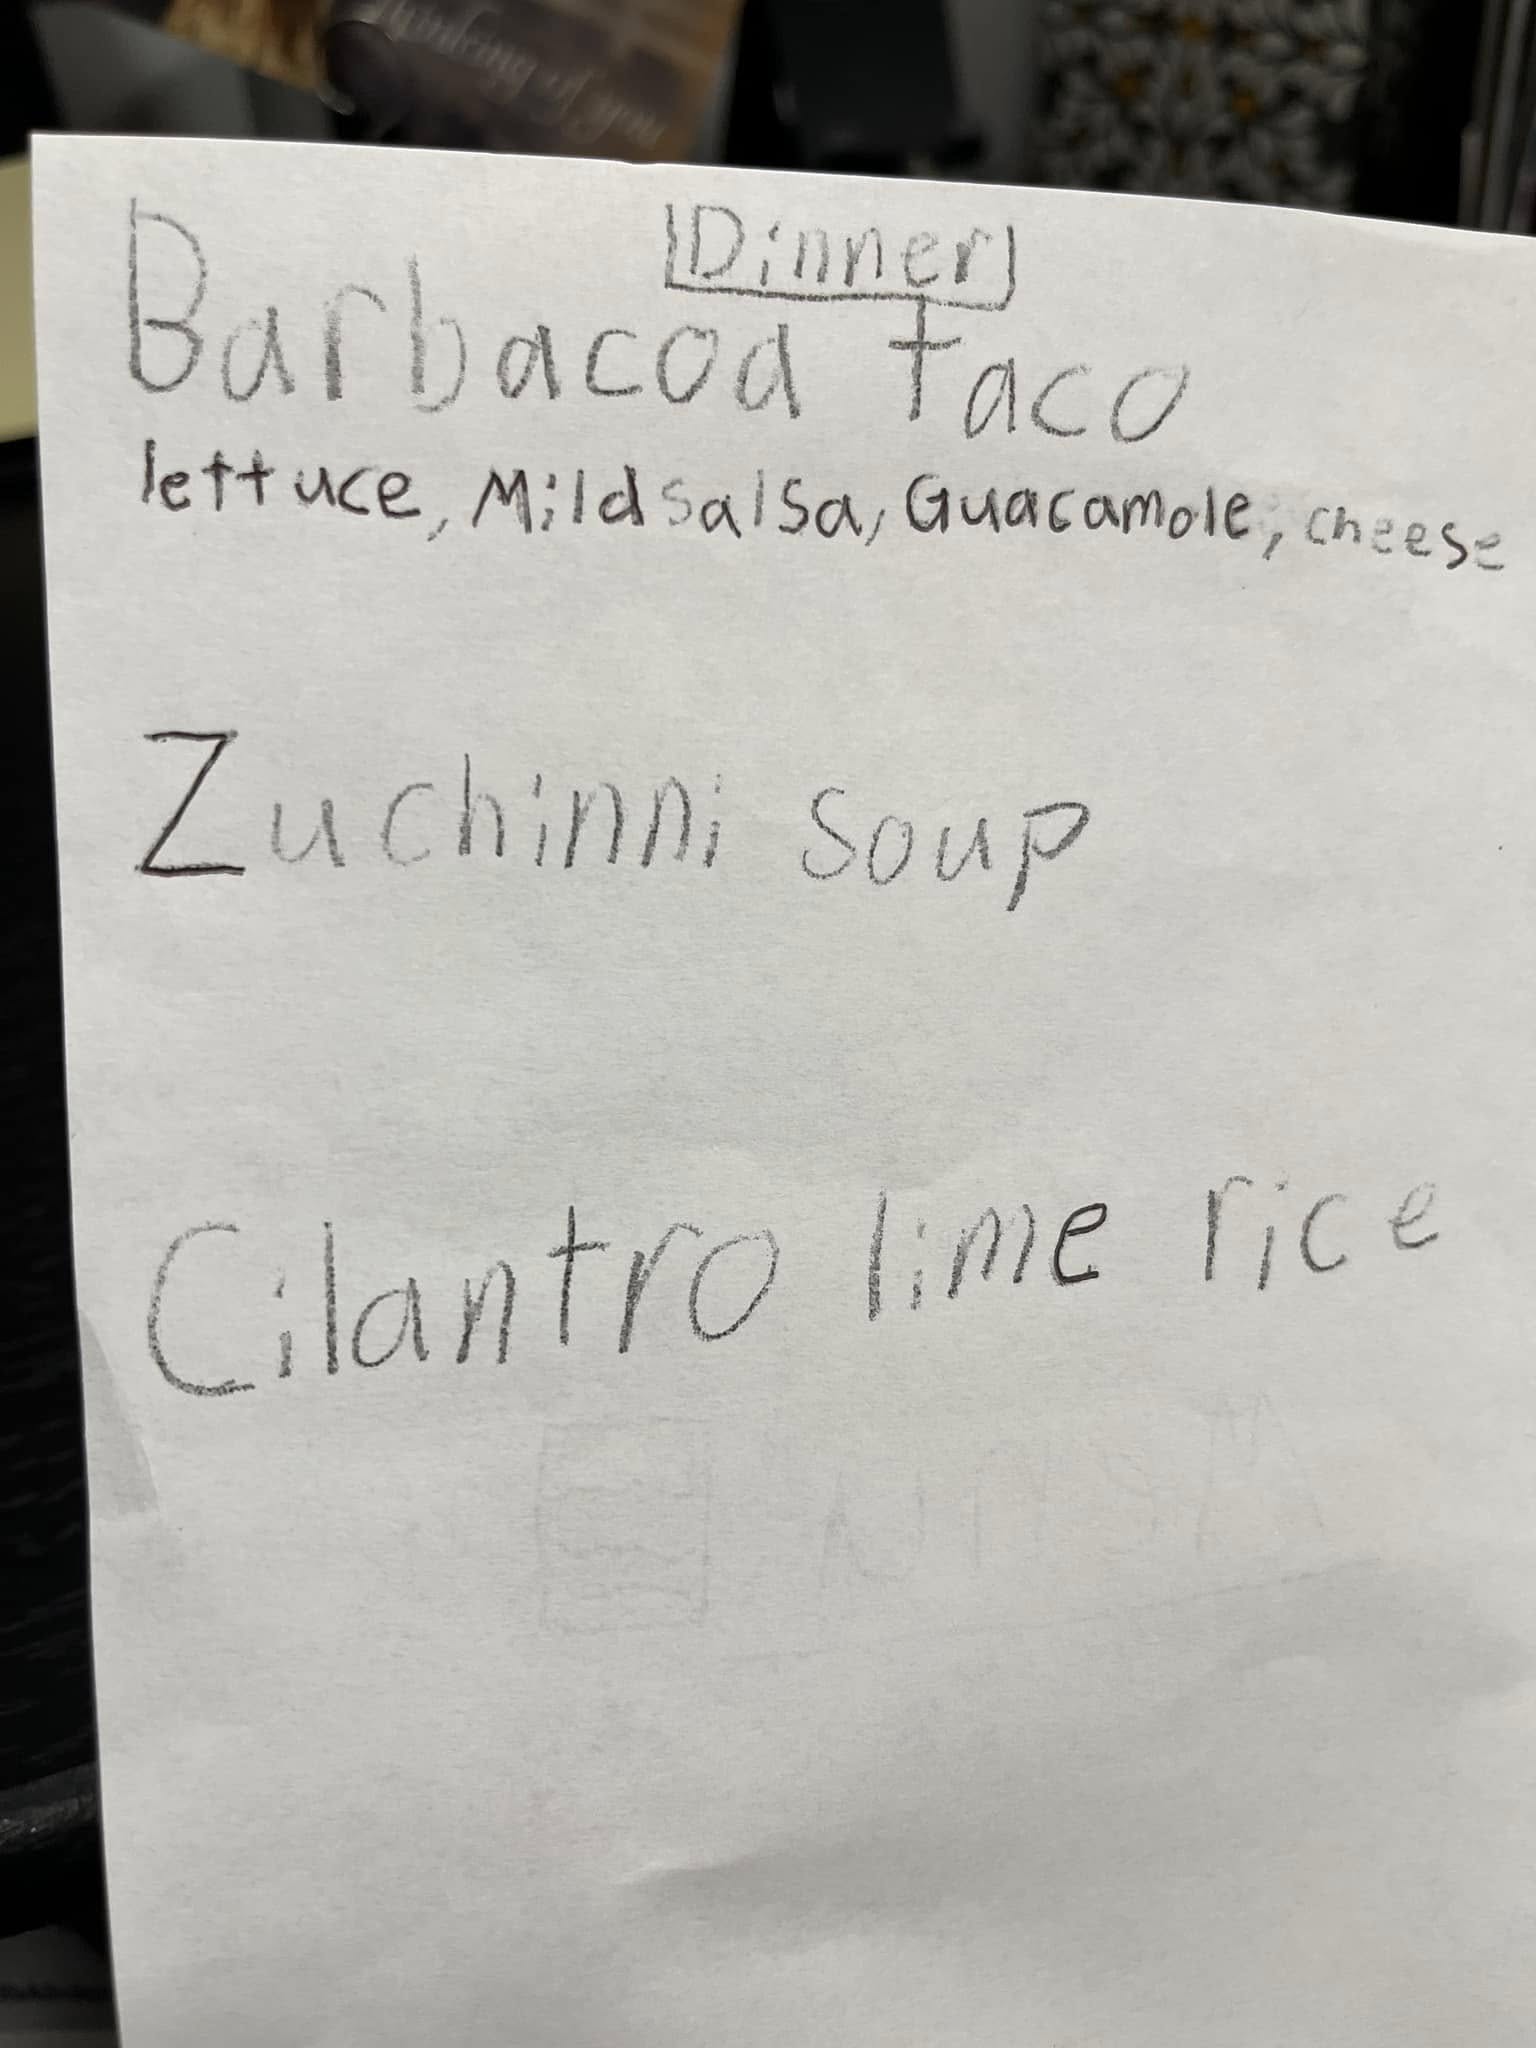 thinking of you
Dinner
Barbacoa taco
lettuce, Mild salsa, Guacamole, cheese
Zuchinni soup
Cilantro lime rice
Menu